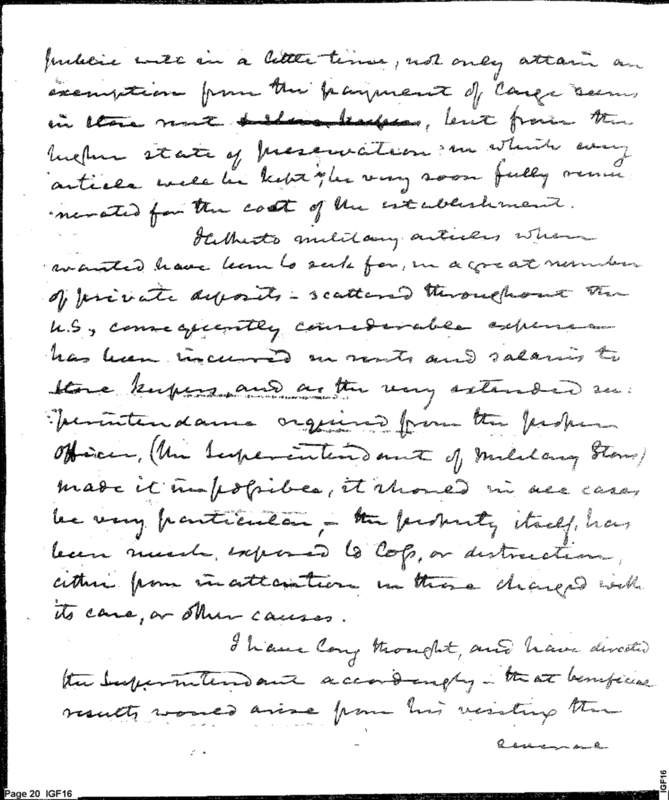 public will in a little time, not only attain an
exemption from the payment of large sums
in store rent & store keepers, but from the
higher state of preservation in which every
article will be kept, be very soon fully remu
nerated for the cost of the establishment.
Hitherto military articles when
wanted have been to seek for, in a great number
of private deposits - scattered throughout the
U.S., consequently considerable expense
has been incurred in rents and salaries to
store keepers, and as the very extended su:
:perintendance required from the proper
officer, (the Superintendant of Military Stores)
made it impossible, it should in all cases
be very particular, - the property itself, has
been much exposed to loss, or destruction,
either from inattention in those charged with
its care, or other causes.
I have long thought, and have directed
the Superintendant accordingly - that beneficial
results would arise from his visiting the
several
Page 20 IGF16
IGF16